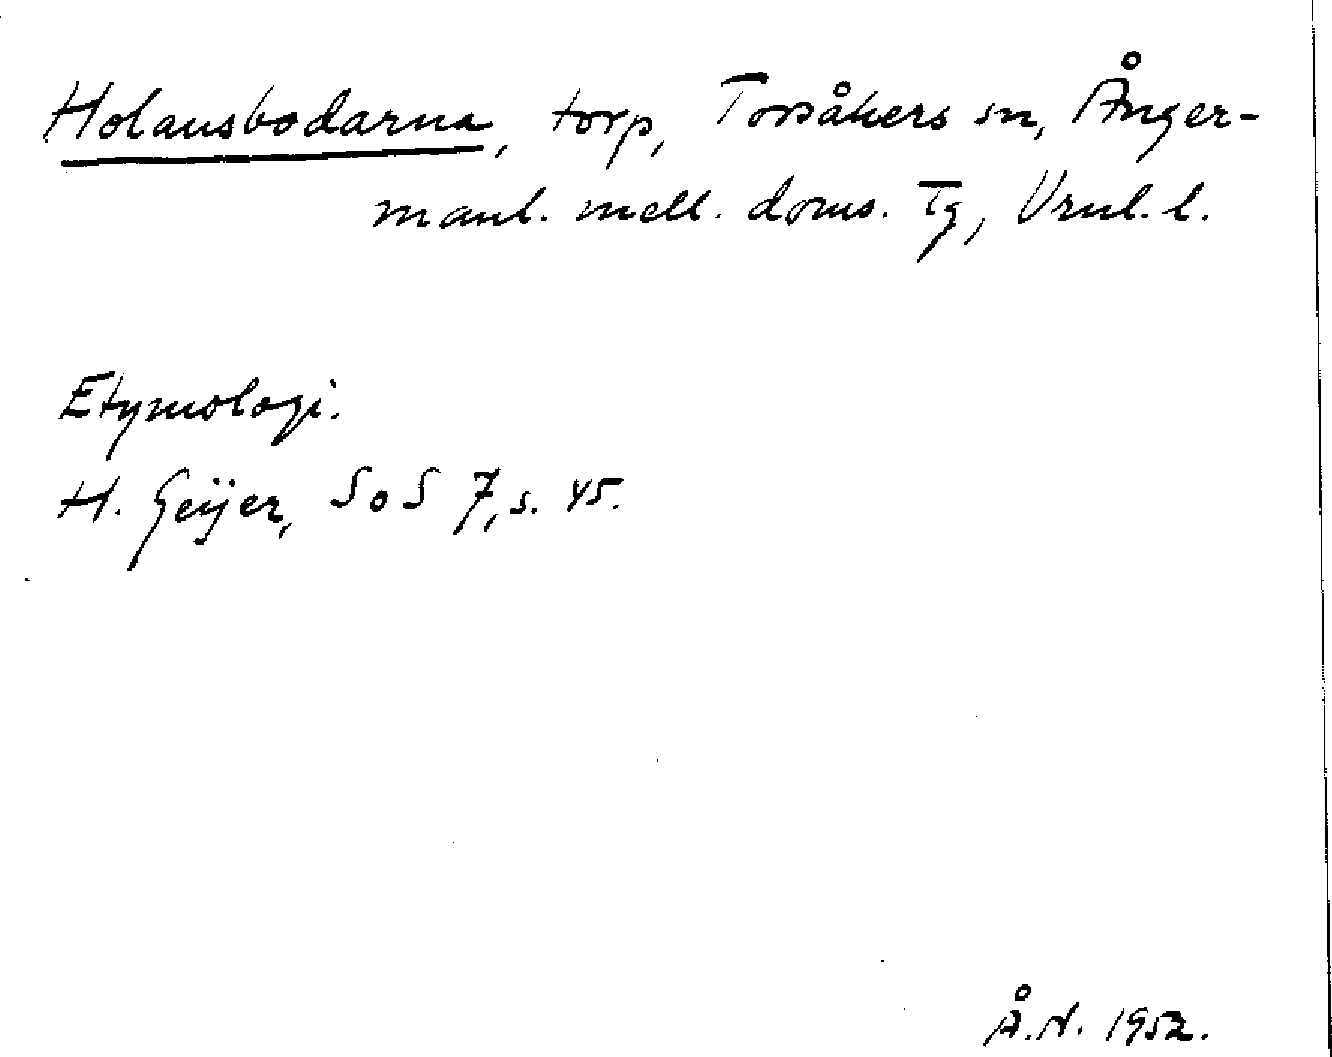 Holansbodarna, torp, Torsåkers sn, Ånger-
manl. mell. doms. Tg, Vrnl. l.
Etymologi.
H. Geijer, SoS 7, s. 45.
Å.N. 1952.